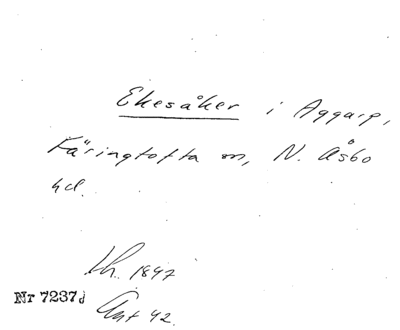 Ekesåker i Aggarp,
Färingtofta sn, N. Åsbo
hd.
Lh. 1847
Nr 7237d
Ant 42.